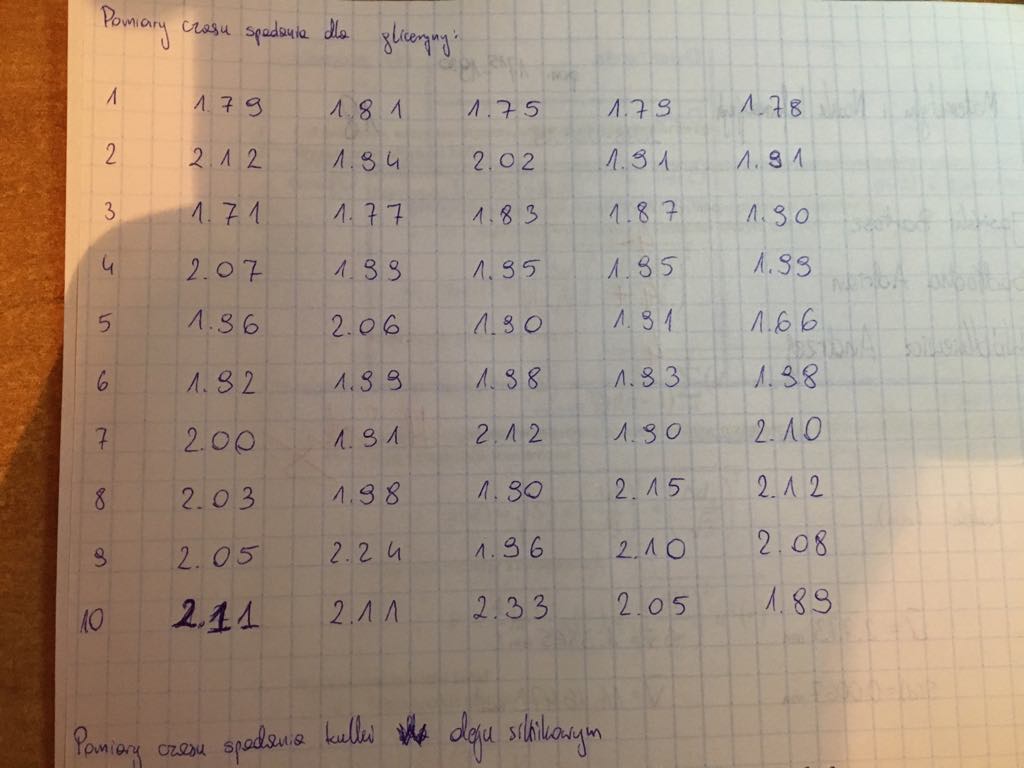 Pomiary czasu spadania dla gliceryny:
1 1.79 1.81 1.75 1.79 1.78
2 2.12 1.94 2.02 1.91 1.91
3 1.71 1.77 1.83 1.87 1.90
4 2.07 1.99 1.95 1.95 1.99
5 1.96 2.06 1.90 1.91 1.66
6 1.92 1.99 1.98 1.93 1.98
7 2.00 1.91 2.12 1.90 2.10
8 2.03 1.98 1.90 2.15 2.12
9 2.05 2.24 1.96 2.10 2.08
10 2.11 2.11 2.33 2.05 1.89
Pomiary czasu spadania kulki oleju silnikowym